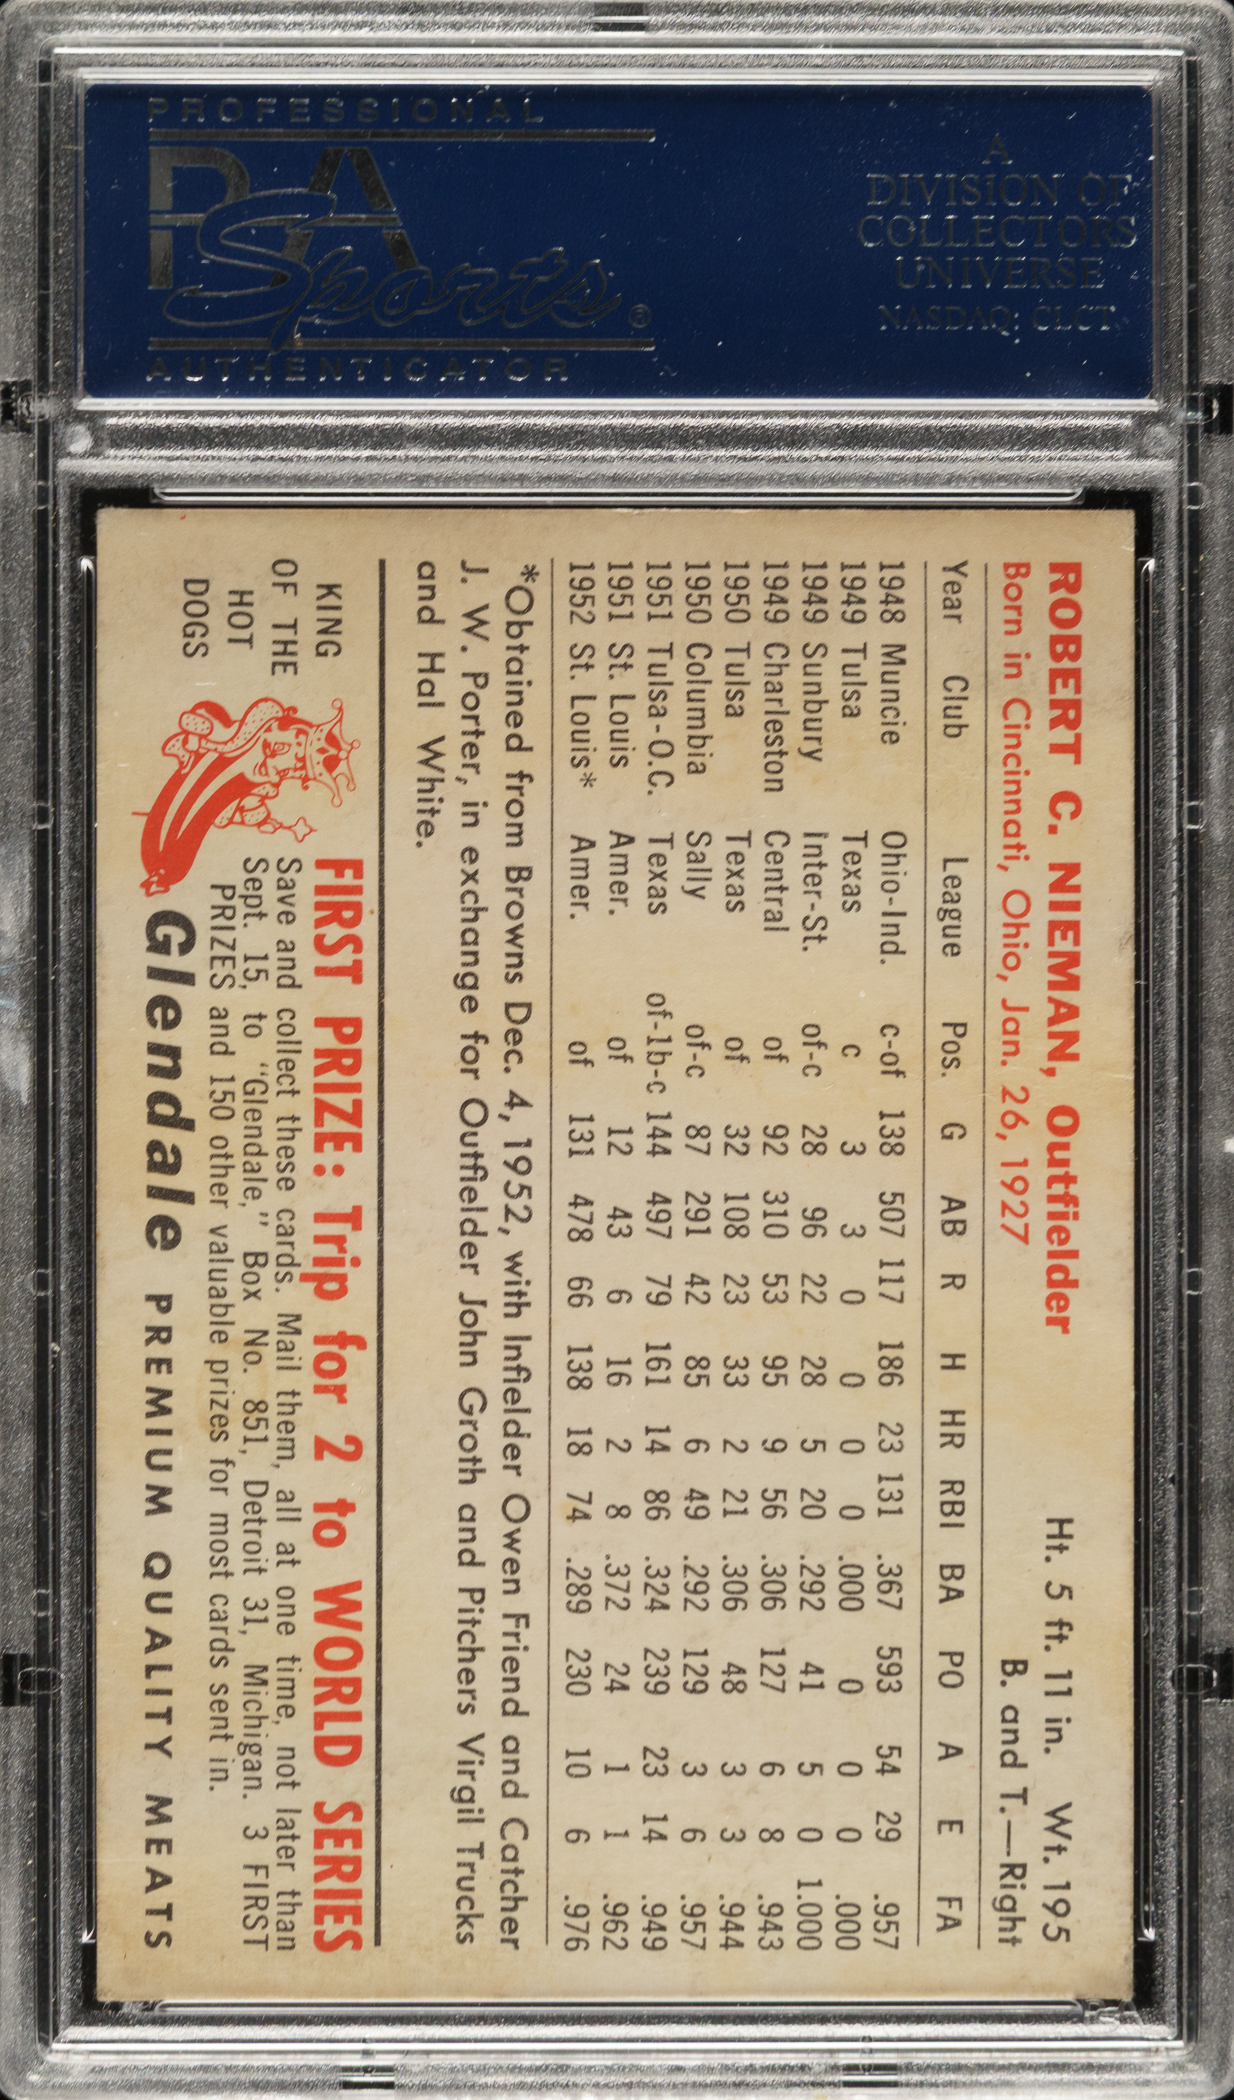 PROFESSIONAL
PSA
Sports®
AUTHENTICATOR
A
DIVISION OF
COLLECTORS
UNIVERSE
NASDAQ: CLCT
ROBERT C. NIEMAN, Outfielder Ht. 5 ft. 11 in. Wt. 195
Born in Cincinnati, Ohio, Jan. 26, 1927 B. and T.—Right
Year Club League Pos. G AB R H HR RBI BA PO A E FA
1948 Muncie Ohio-Ind. c-of 138 507 117 186 23 131 .367 593 54 29 .957
1949 Tulsa Texas c 3 3 0 0 0 0 .000 0 0 0 .000
1949 Sunbury Inter-St. of-c 28 96 22 28 5 20 .292 41 5 0 1.000
1949 Charleston Central of 92 310 53 95 9 56 .306 127 6 8 .943
1950 Tulsa Texas of 32 108 23 33 2 21 .306 48 3 3 .944
1950 Columbia Sally of-c 87 291 42 85 6 49 .292 129 3 6 .957
1951 Tulsa-O.C. Texas of-1b-c 144 497 79 161 14 86 .324 239 23 14 .949
1951 St. Louis Amer. of 12 43 6 16 2 8 .372 24 1 1 .962
1952 St. Louis* Amer. of 131 478 66 138 18 74 .289 230 10 6 .976
*Obtained from Browns Dec. 4, 1952, with Infielder Owen Friend and Catcher
J. W. Porter, in exchange for Outfielder John Groth and Pitchers Virgil Trucks
and Hal White.
KING
OF THE
HOT
DOGS
FIRST PRIZE: Trip for 2 to WORLD SERIES
Save and collect these cards. Mail them, all at one time, not later than
Sept. 15, to "Glendale," Box No. 851, Detroit 31, Michigan. 3 FIRST
PRIZES and 150 other valuable prizes for most cards sent in.
Glendale PREMIUM QUALITY MEATS
PSA